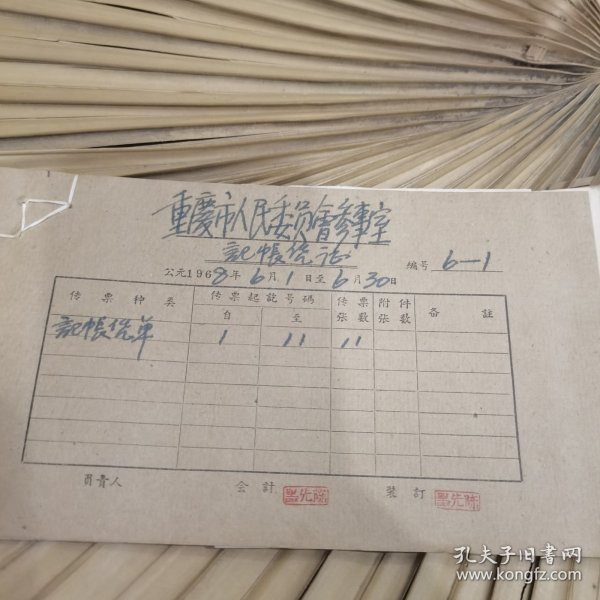 重慶市人民委員會参事室
記帳凭证
編号 6-1
公元1968年6月1日至6月30日
传票种类 传票起訖号碼 传票張数 附件張数 备註
自 至
記帳凭单 1 11 11
負責人 会計 装訂
孔夫子旧書网
www.kongfz.com